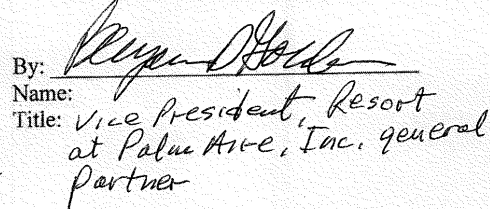 By:
Name:
Title: Vice President, Resort
at Palm Aire, Inc. general
partner